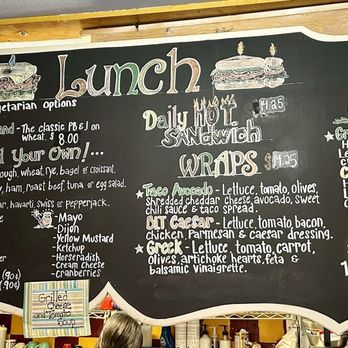 Lunch
getarian options
and - The classic PB&J on
wheat. $8.00
d Your Own!...
dough, wheat, rye, bagel or croissant.
y, ham, roast beef, tuna or egg salad.
ar, havarti, swiss or pepperjack.
- Mayo
- Dijon
- Yellow Mustard
- Ketchup
- Horseradish
- Cream Cheese
- cranberries
(90¢)
(90¢)
Grilled
Cheese
and Tomato
Soup
Daily HOT $14.25
SANDWICH
WRAPS $14.25
★ Taco Avocado - Lettuce, tomato, olives,
shredded cheddar cheese, avocado, sweet
chili sauce & taco spread.
★ BLT Caesar - Lettuce, tomato, bacon,
chicken, parmesan & caesar dressing.
★ Greek - Lettuce, tomato, carrot,
olives, artichoke hearts, feta &
balsamic vinaigrette.